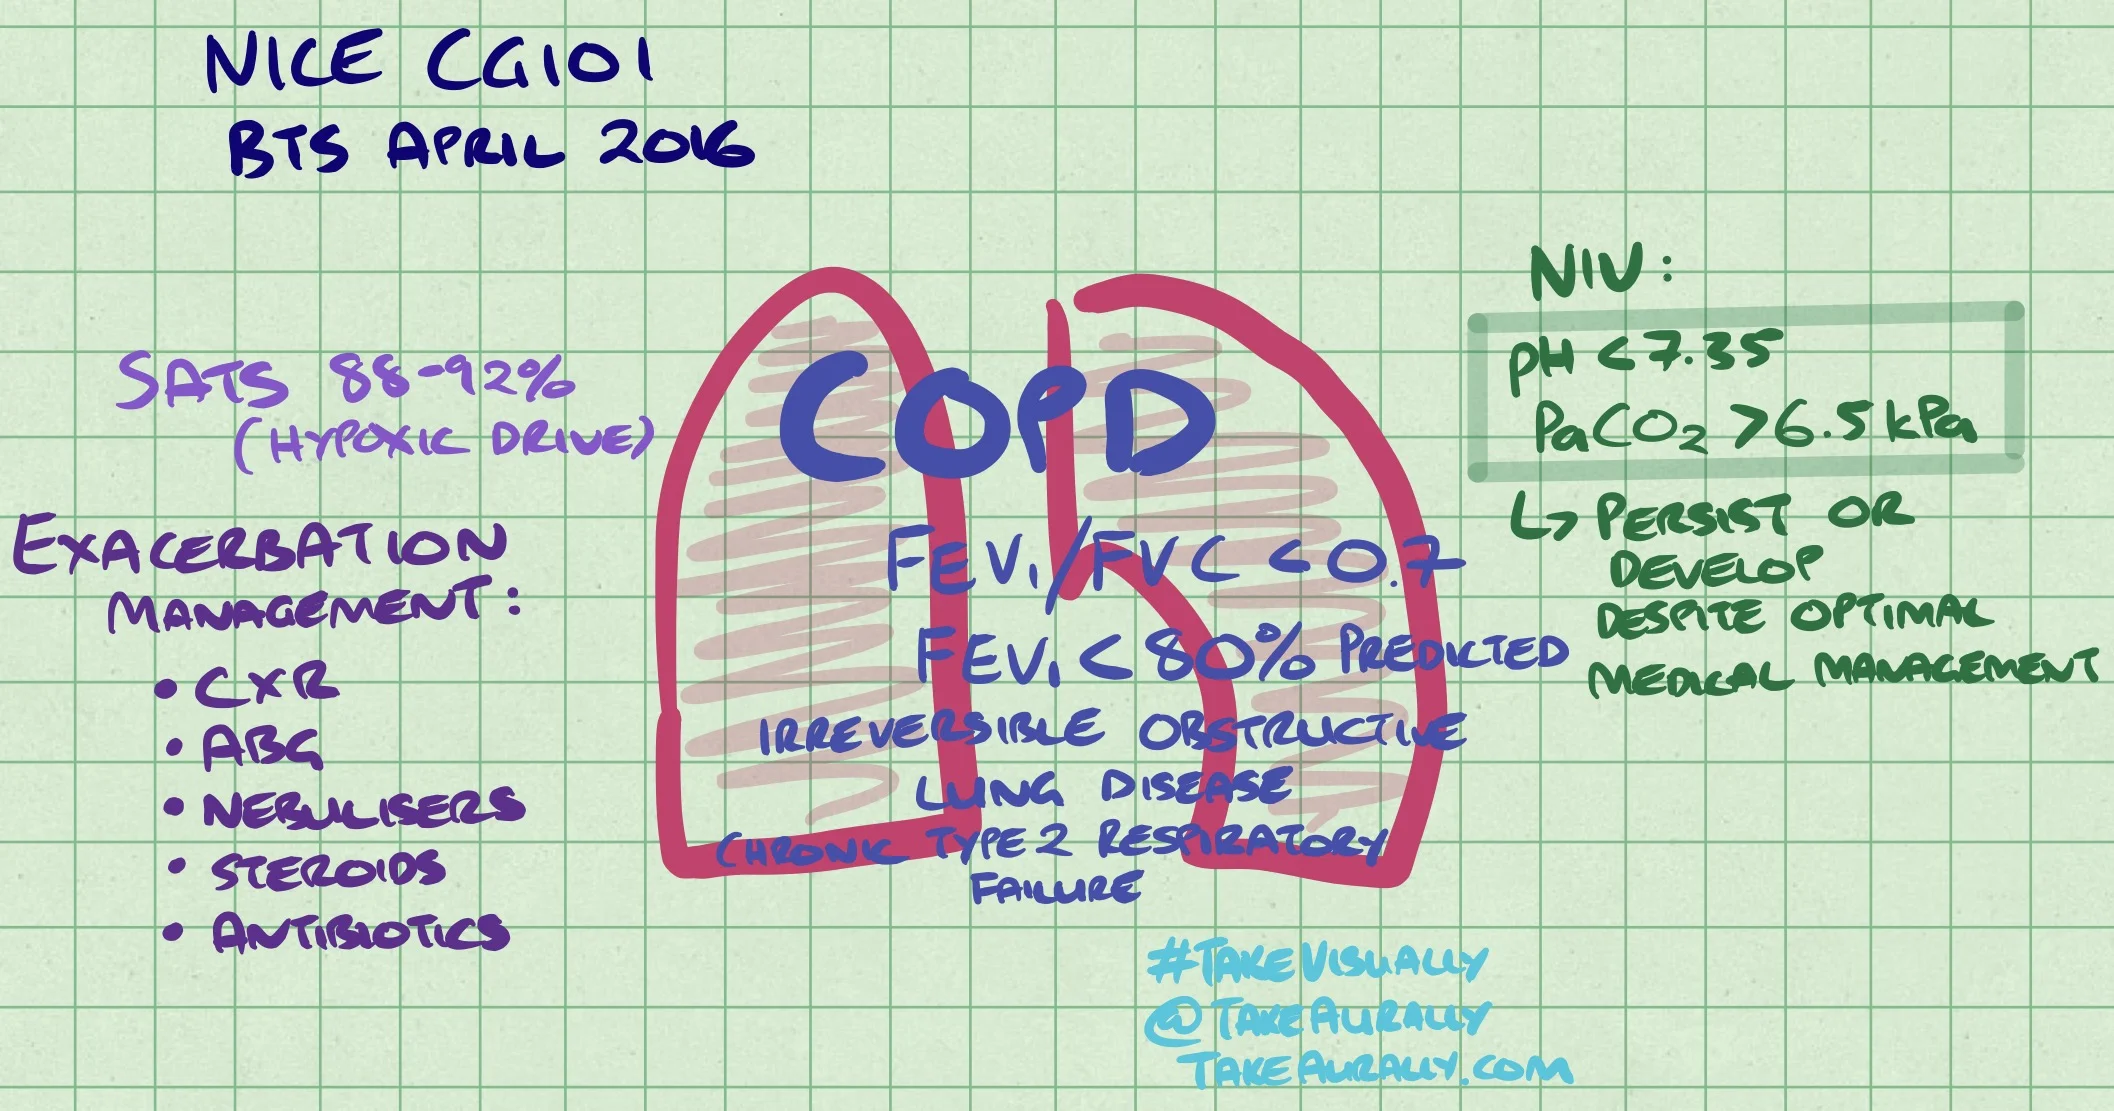 NICE CG101
BTS APRIL 2016
SATS 88-92%
(HYPOXIC DRIVE)
EXACERBATION
MANAGEMENT:
• CXR
• ABG
• NEBULISERS
• STEROIDS
• ANTIBIOTICS
COPD
FEV₁/FVC <0.7
FEV₁ <80% PREDICTED
IRREVERSIBLE OBSTRUCTIVE
LUNG DISEASE
CHRONIC TYPE 2 RESPIRATORY
FAILURE
NIV:
pH <7.35
PaCO₂ >6.5 kPa
↳ PERSIST OR
DEVELOP
DESPITE OPTIMAL
MEDICAL MANAGEMENT
#TAKEVISUALLY
@TAKEAURALLY
TAKEAURALLY.COM